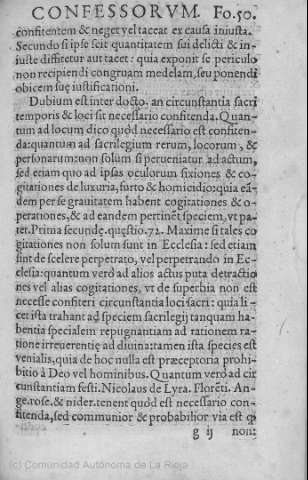 CONFESSORVM. Fo.50.
confitentem & neget vel taceat ex causa iniusta.
Secundo si ipse scit quantitatem sui delicti & in-
iuste diffitetur aut tacet: quia exponit se periculo
non recipiendi congruam medelam, seu ponendi
obicem suę iustificationi.
Dubium est inter docto. an circunstantia sacri
temporis & loci sit necessario confitenda. Quan-
tum ad locum dico quòd necessario est confiten-
da: quantum ad sacrilegium rerum, locorum, &
personarum: non solum si perueniatur ad actum,
sed etiam quo ad ipsas oculorum fixiones & co-
gitationes de luxuria, furto & homicidio: quia eā-
dem per se grauitatem habent cogitationes & o-
perationes, & ad eandem pertinēt speciem, vt pa-
ter. Prima secundę. quęstio. 72. Maxime si tales co
gitationes non solum sunt in Ecclesia: sed etiam
sunt de scelere perpetrato, vel perpetrando in Ec-
clesia: quantum verò ad alios actus puta detractio
nes vel alias cogitationes, vt de superbia non est
necesse confiteri circunstantia loci sacri: quia li-
cet ista trahant ad speciem sacrilegij tanquam ha-
bentia specialem repugnantiam ad rationem ra-
tione irreuerentię ad diuina: tamen ista species est
venialis, quia de hoc nulla est præceptoria prohi-
bitio à Deo vel hominibus. Quantum verò ad cir
cunstantiam festi. Nicolaus de Lyra. Florēti. An-
ge. rose. & nider. tenent quòd est necessario con-
fitenda, sed communior & probabilior via est q
g ij non:
(c) Comunidad Autónoma de La Rioja